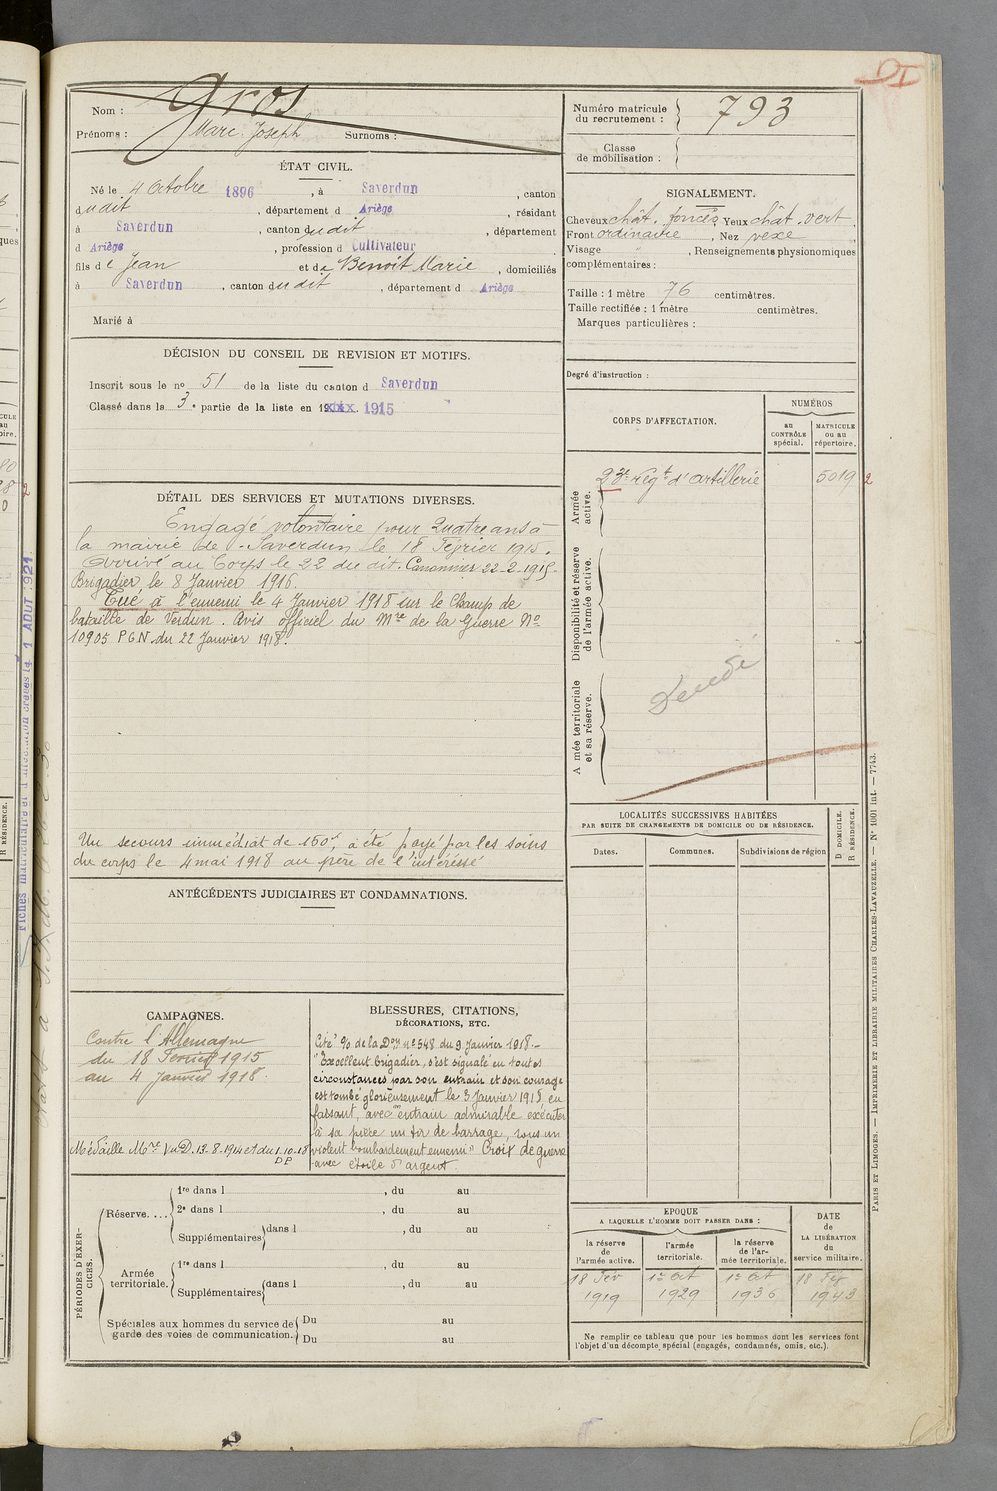 Nom : Gros
Prénoms : Marc Joseph Surnoms :
Numéro matricule du recrutement : 793
Classe de mobilisation :
ÉTAT CIVIL.
Né le 4 Octobre 1896 , à Saverdun , canton
dudit , département d Ariège , résidant
à Saverdun , canton dudit , département
d Ariège , profession d Cultivateur
fils de Jean et de Benoit Marie , domiciliés
à Saverdun , canton dudit , département d Ariège
Marié à
SIGNALEMENT.
Cheveux chât. foncés Yeux chât. vert
Front ordinaire , Nez vexe
Visage , Renseignements physionomiques
complémentaires :
Taille : 1 mètre 76 centimètres.
Taille rectifiée : 1 mètre centimètres.
Marques particulières :
Degré d'instruction :
DÉCISION DU CONSEIL DE REVISION ET MOTIFS.
Inscrit sous le no 51 de la liste du canton d Saverdun
Classé dans la 3e partie de la liste en 19xxx. 1915
CORPS D'AFFECTATION.
NUMÉROS
au CONTRÔLE spécial.
MATRICULE ou au répertoire.
Armée active.
23e Régt d'artillerie 5019 2
Disponibilité et réserve de l'armée active.
A mée territoriale et sa réserve.
DÉTAIL DES SERVICES ET MUTATIONS DIVERSES.
Engagé volontaire pour Quatre ans à
la mairie de Saverdun le 18 Février 1915.
Arrivé au Corps le 22 du dit. Canonnier 22-2-1915-
Brigadier le 8 Janvier 1916.
Tué à l'ennemi le 4 Janvier 1918 sur le Champ de
bataille de Verdun. Avis officiel du Mre de la Guerre No
10905 P G N. du 22 Janvier 1918.
Un secours immédiat de 150f, a été payé par les soins
du corps le 4 mai 1918 au père de l'intéréssé
LOCALITÉS SUCCESSIVES HABITÉES
PAR SUITE DE CHANGEMENTS DE DOMICILE OU DE RÉSIDENCE.
Dates. Communes. Subdivisions de région
D DOMICILE.
R RÉSIDENCE.
ANTÉCÉDENTS JUDICIAIRES ET CONDAMNATIONS.
CAMPAGNES.
Contre l'Allemagne
du 18 Février 1915
au 4 Janvier 1918.
Médaille Mre V.u D. 13-8-1914 et du 1-10-18
DP
BLESSURES, CITATIONS,
DÉCORATIONS, ETC.
Cité % de la Don no 548 du 9 Janvier 1918.-
"Excellent brigadier, s'est signalé en toutes
circonstances par son entrain et son courage
est tombé glorieusement le 3 Janvier 1918 en
faisant, avec un entrain admirable exécuter
à sa pièce un tir de barrage, sous un
violent bombardement ennemi" Croix de guerre
avec étoile d'argent.
PÉRIODES D'EXERCICES.
Réserve....
1re dans l , du au
2e dans l , du au
Supplémentaires dans l , du au
Armée territoriale.
1re dans l , du au
Supplémentaires dans l , du au
Spéciales aux hommes du service de garde des voies de communication.
Du au
Du au
EPOQUE
A LAQUELLE L'HOMME DOIT PASSER DANS :
la réserve de l'armée active.
l'armée territoriale.
la réserve de l'armée territoriale.
DATE de LA LIBÉRATION du service militaire.
18 Fév 1919
1er Oct 1929
1er Oct 1936
18 Fév 1943
Ne remplir ce tableau que pour les hommes dont les services font
l'objet d'un décompte spécial (engagés, condamnés, omis, etc.).
PARIS ET LIMOGES. — IMPRIMERIE ET LIBRAIRIE MILITAIRES CHARLES-LAVAUZELLE. — No 1001 int. — 7743.